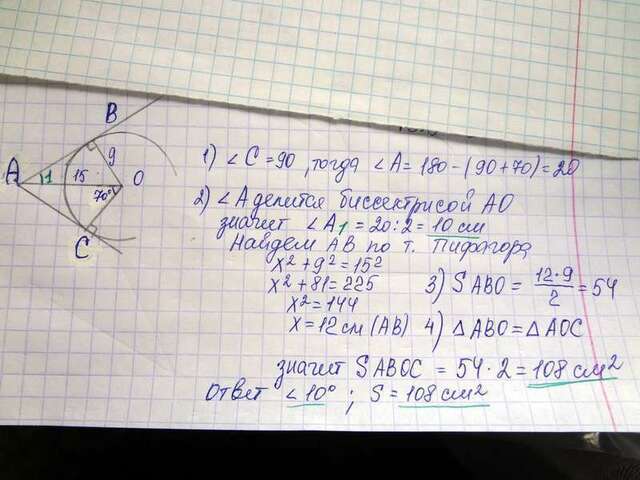 B
9
A 1 15 O
70°
C
1) ∠C=90, тогда ∠A=180-(90+70)=20
2) ∠A делится биссектрисой AO
значит ∠A1=20:2=10 см
Найдем AB по т. Пифагора
x²+9²=15²
x²+81=225
x²=144
x=12см (AB)
3) S ABO = 12·9/2 = 54
4) △ABO=△AOC
значит SABOC = 54·2=108 см²
Ответ ∠10°; S=108см²